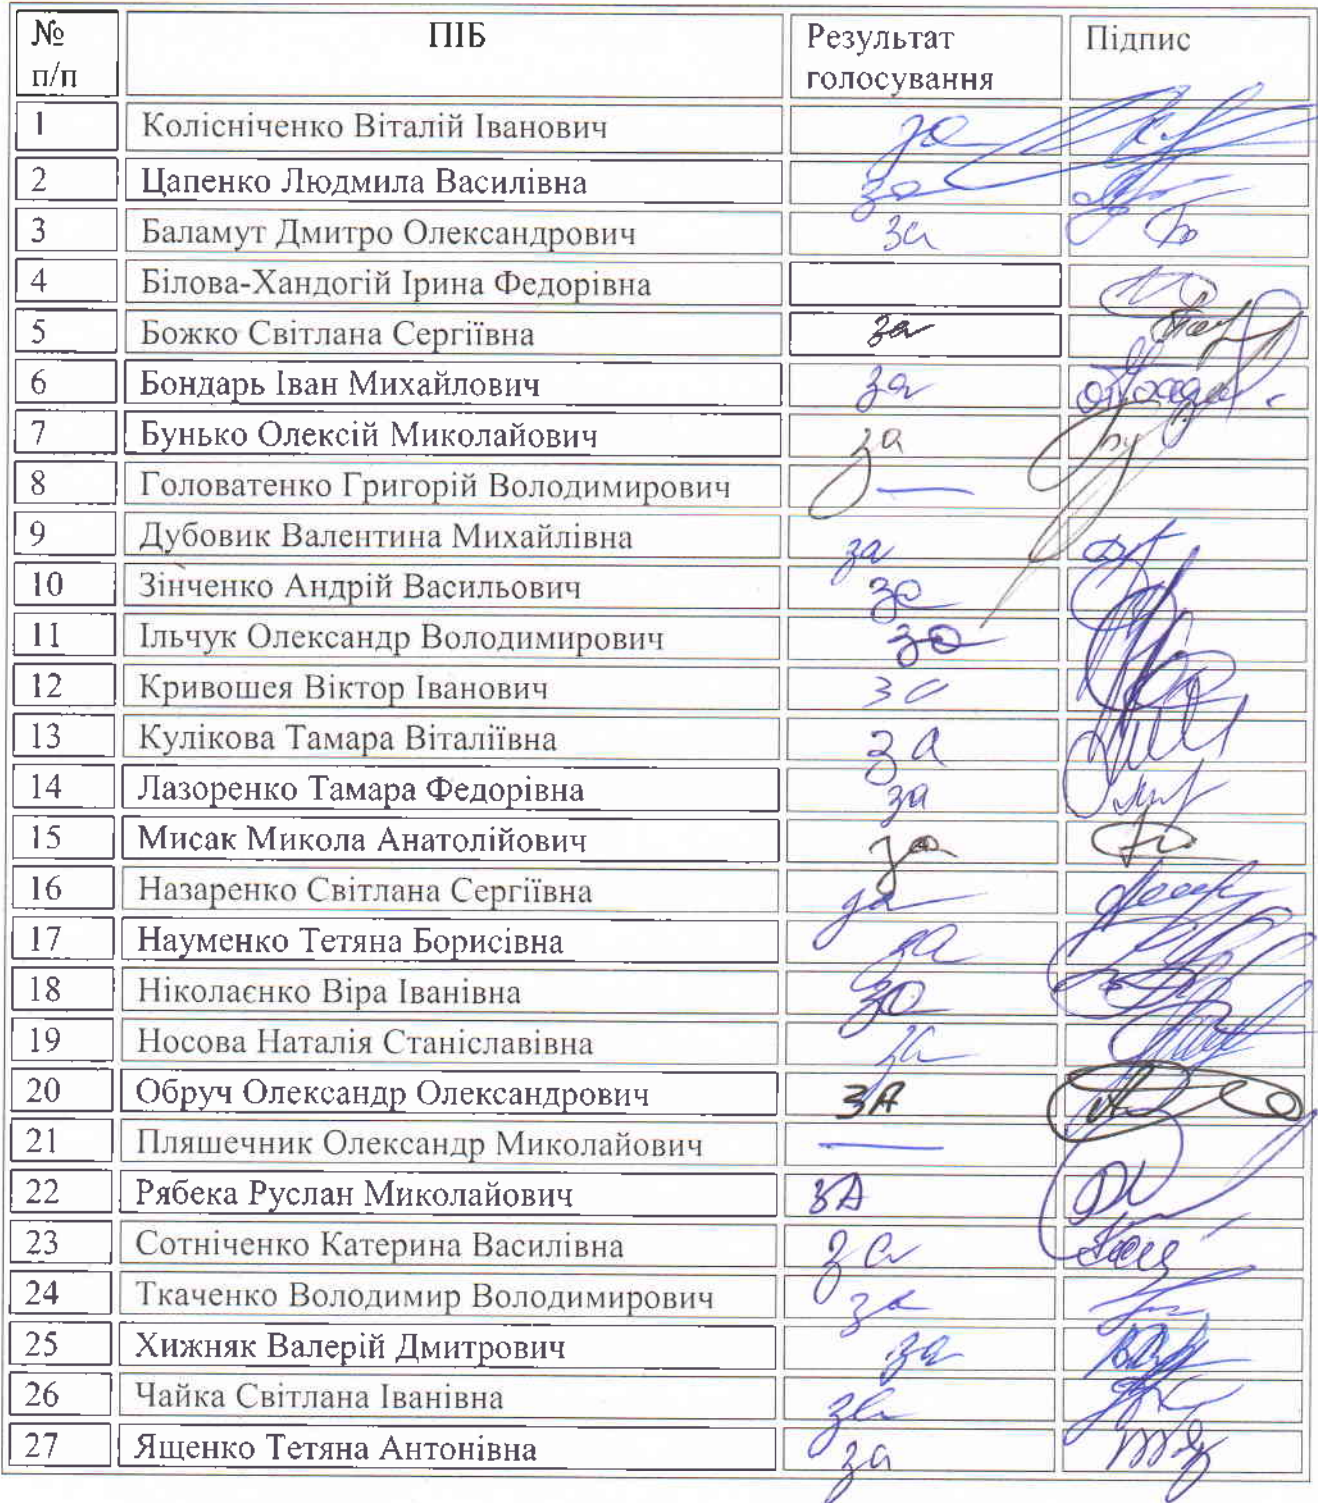 № п/п ПІБ Результат голосування Підпис
1 Колісніченко Віталій Іванович за
2 Цапенко Людмила Василівна за
3 Баламут Дмитро Олександрович за
4 Білова-Хандогій Ірина Федорівна
5 Божко Світлана Сергіївна за
6 Бондарь Іван Михайлович за
7 Бунько Олексій Миколайович за
8 Головатенко Григорій Володимирович —
9 Дубовик Валентина Михайлівна за
10 Зінченко Андрій Васильович за
11 Ільчук Олександр Володимирович за
12 Кривошея Віктор Іванович за
13 Кулікова Тамара Віталіївна за
14 Лазоренко Тамара Федорівна за
15 Мисак Микола Анатолійович за
16 Назаренко Світлана Сергіївна за
17 Науменко Тетяна Борисівна за
18 Ніколаєнко Віра Іванівна за
19 Носова Наталія Станіславівна за
20 Обруч Олександр Олександрович ЗА
21 Пляшечник Олександр Миколайович —
22 Рябека Руслан Миколайович ЗА
23 Сотніченко Катерина Василівна за
24 Ткаченко Володимир Володимирович за
25 Хижняк Валерій Дмитрович за
26 Чайка Світлана Іванівна за
27 Ященко Тетяна Антонівна за